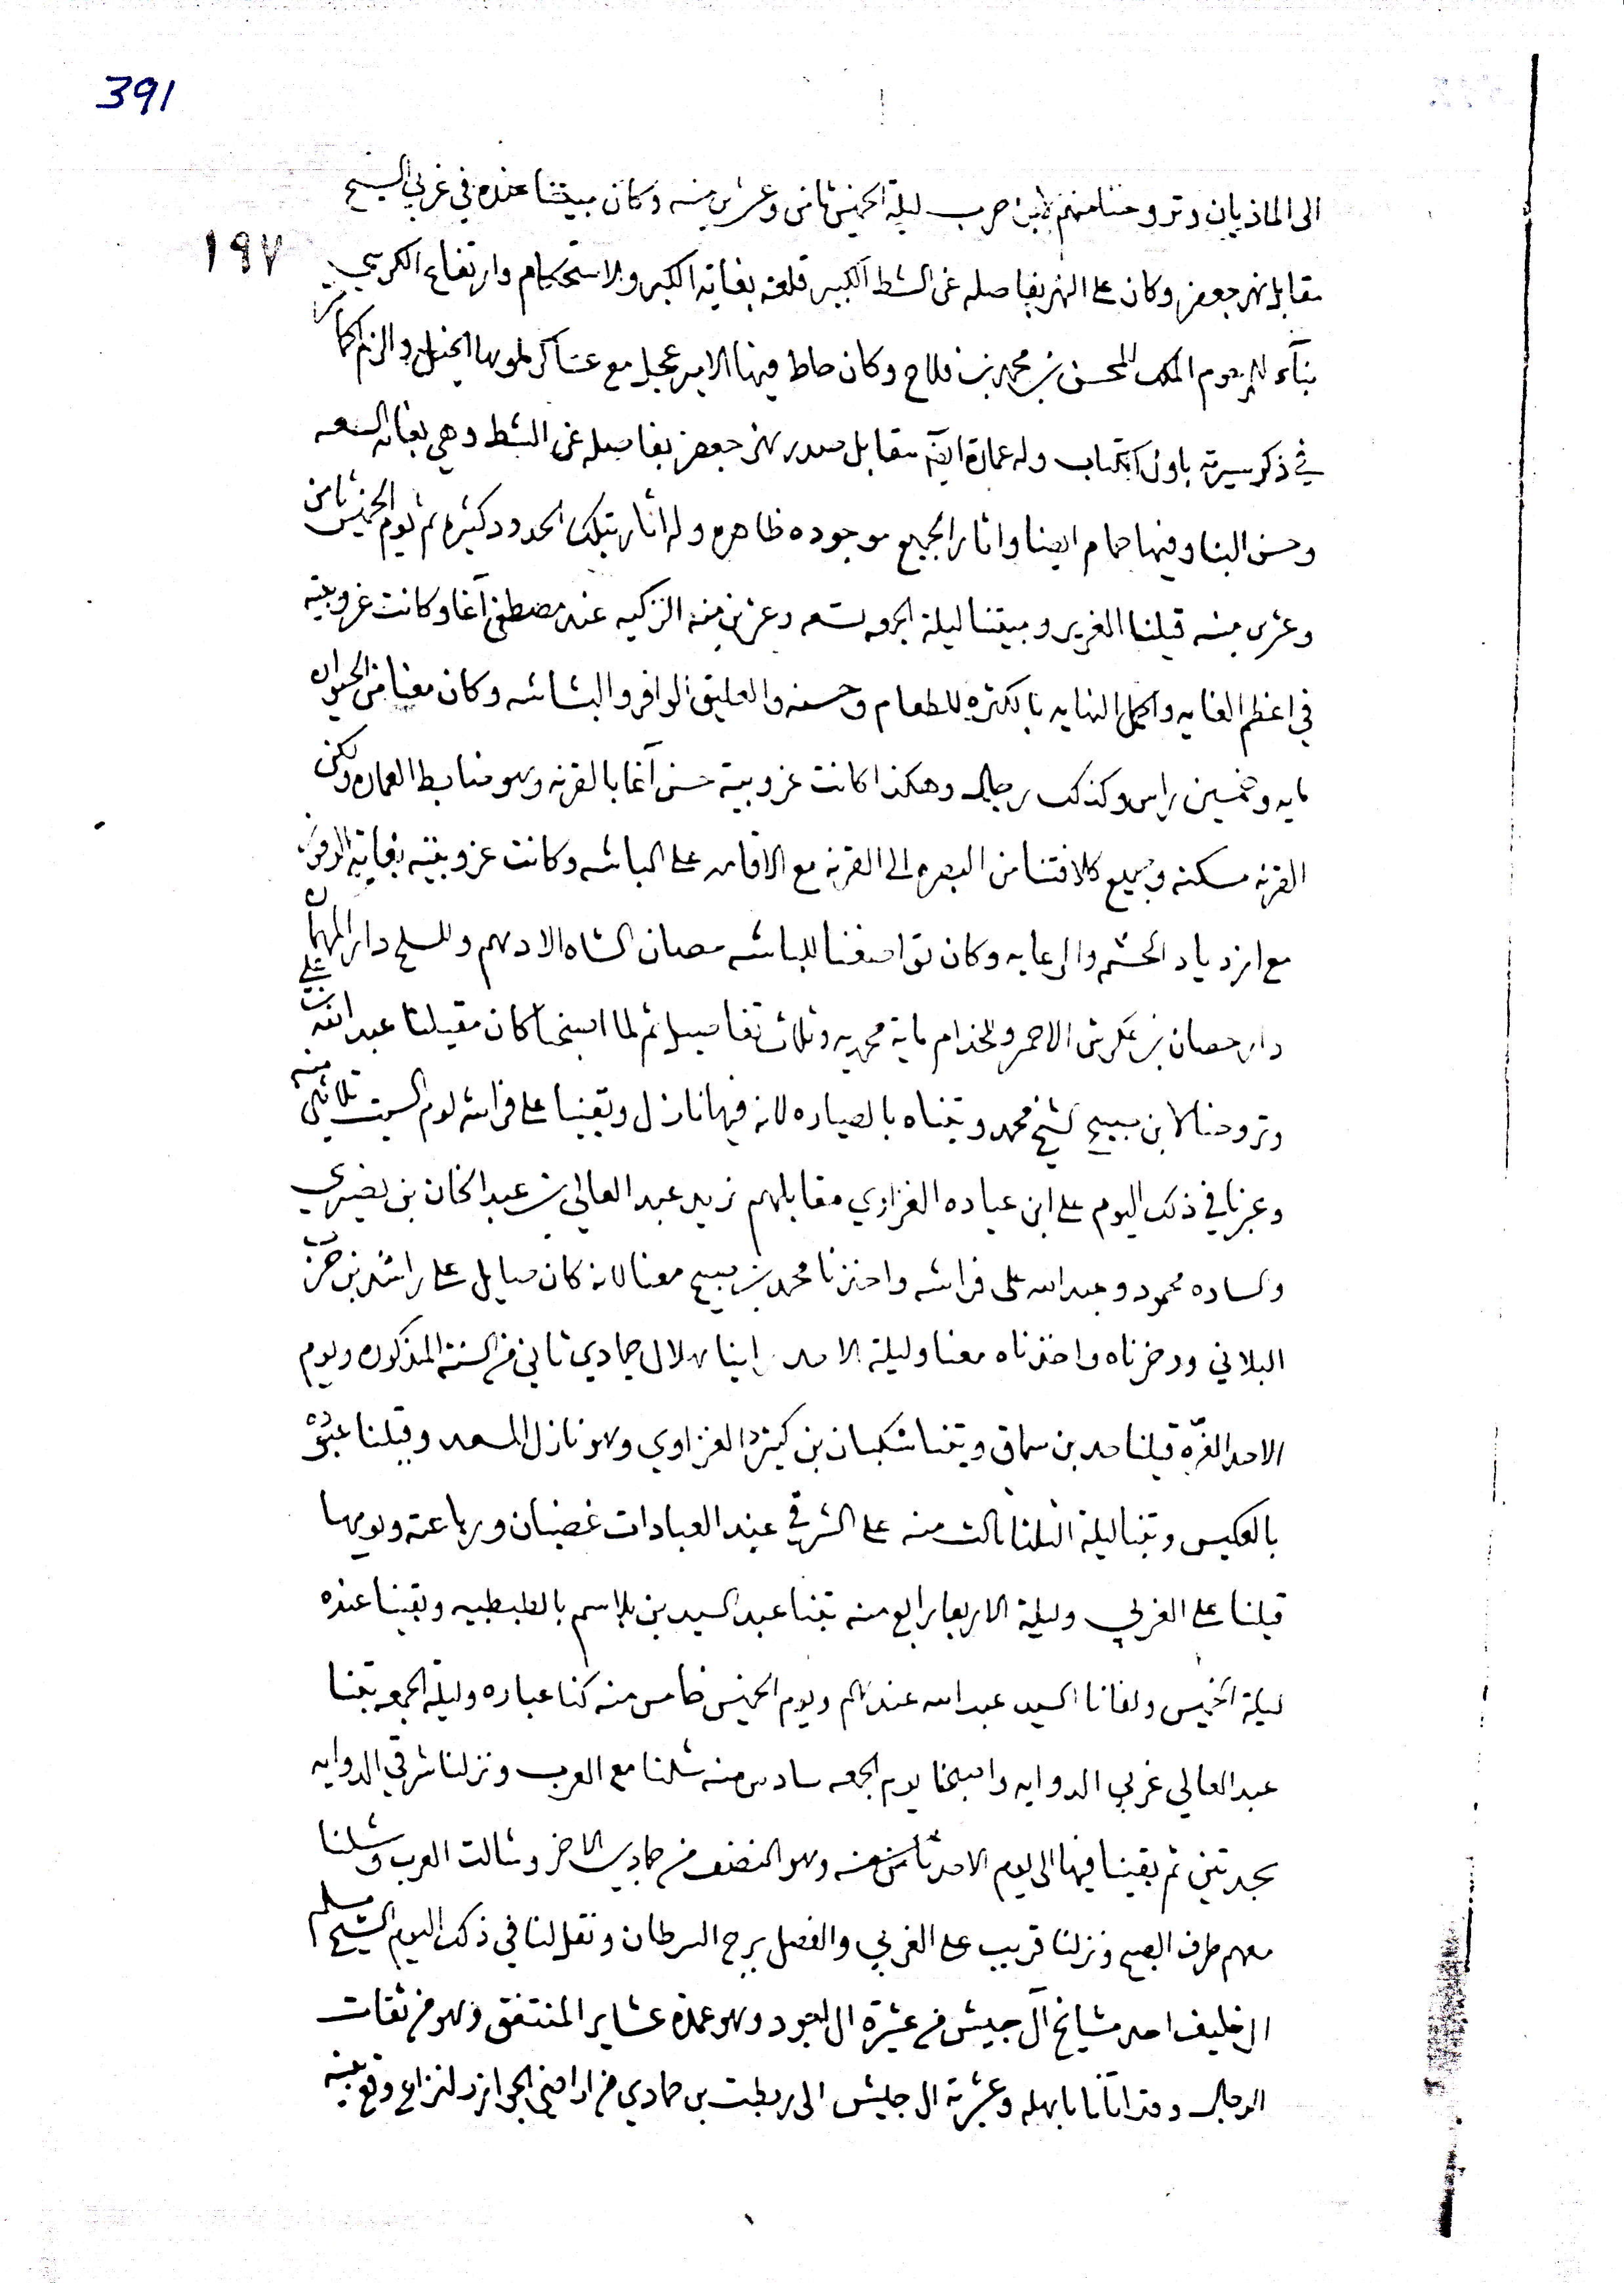 391
١٩٧
الى الماذيان وتروحنا منهم لابن حرب ليلة الخميس ثامن وعشرين منه وكان مبيتنا عنده في غربي السيح
مقابل نهر جعفر وكان على النهر بفاصله عن الشط الكبير قلعه بغاية الكبر والاستحكام وارتفاع الكرسي
بناء المرحوم الملك المحسن بن محمد بن فلاح وكان حاط فيها الامير عجيل مع عساكر
في ذكر سيرته باول الكتاب وله عمارة ايضا مقابل صدر نهر جعفر بفاصله عن الشط وهي بغاية السعه
وحسن البنا وفيها حمام ايضا واثار الجميع موجوده ظاهره وله اثار بتلك الحدود كثيره ثم يوم الخميس ثامن
وعشرين منه قيلنا الغرير وبيتنا ليلة الجمعه تسعه وعشرين منه الزكيه عند مصطفى آغا وكانت عزوبيته
في اعظم الغايه واكمل النهايه بالكثره للطعام وحسنه والعليق الوافر والبشاشه وكان معنا من الحيوان
مايه وخمسين راس وكذلك رجال وهكذا كانت عزوبية حسن آغا بالقرنه وهو ضابط العماره ولكن
القرنه مسكنه وجميع كلافتنا من البصره الى القرنه مع الاقامه على الباشه وكانت عزوبيته بغاية الوفور
مع ازدياد الحشم والرعايه وكان تواضعنا للباشه حصان الشاه الادهم وللسلحدار المهمان
دار حصان بن عكرش الاحمر وللخدام ماية محمديه وثلاث تفاصيل ثم لما اصبحنا كان مقيلنا على
وتروحنا لابن صبيح الشيخ محمد وبتناه بالصياره لانه فيها نازل وبقينا على فراشه يوم السبت ثلاثين منه
وعبرنا في ذلك اليوم على ابن عباده الغزاوي مقابلهم نريد عبد العالي بن عبد الخان بن نصيري
والساده محمود وعبد الله على فراشه واخذنا محمد بن صبيح معنا لانه كان صايل على راشد بن
البلاني ورضرناه واخذناه معنا وليلة الاحد راينا هلال جمادي ثاني من السنة المذكوره ويوم
الاحد الغره قيلنا حمد بن سماق وبتنا شكبان بن كينز الغزاوي وهو نازل المسعد وقيلنا
بالعكيس وبتنا ليلة الثلثا ثالث منه على الشرقي عند العبادات غضبان ورباعته ويومها
قيلنا على الغربي وليلة الاربعا رابع منه بتنا عبد السيد بن بلاسم بالطبطبيه وبقينا عنده
ليلة الخميس ولفانا السيد عبد الله عندهم ويوم الخميس خامس منه كنا عباره وليلة الجمعه بتنا
عبد العالي غربي الدوايه واصبحنا يوم الجمعه سادس منه شلنا مع العرب ونزلنا شرقي الدوايه
بجدتين ثم بقينا فيها الى يوم الاحد ثامن منه وهو النصف من جمادي الاخر وشالت العرب وشلنا
معهم طرف الصبح ونزلنا قريب على الغربي والفصل برج السرطان ونقل لنا في ذلك اليوم الشيخ مسلم
ال خليف احد مشايخ آل جيش من عشيرة ال العبود وهو عمدة عشاير المنتفق وهو من ثقات
الرجال وقد اتانا باهله وعشيرته ال جليش الى ربطت بن حمادي من اراضي الجوازر لنزاع وقع بينه